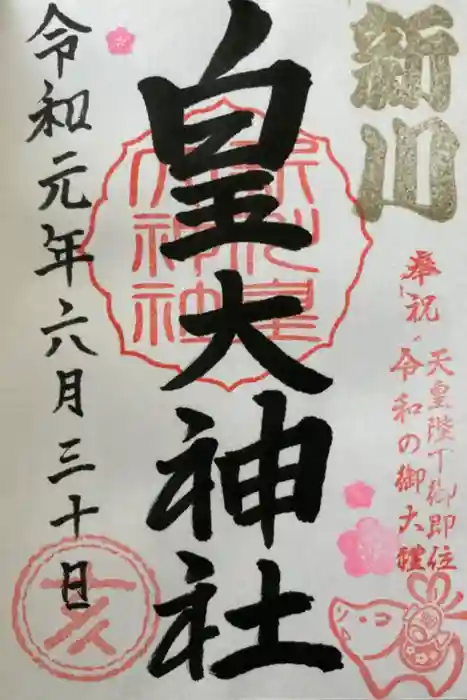 新川
奉祝
天皇陛下御即位
令和の御大禮
皇大神社
令和元年六月三十日